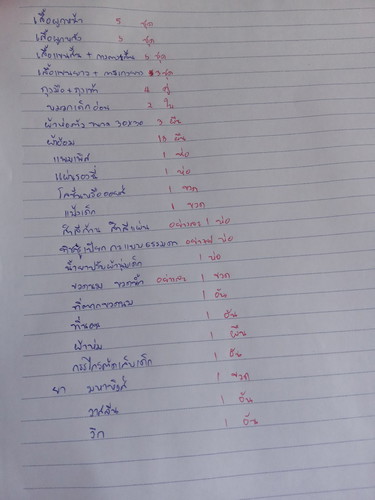 เสื้อผูกหน้า 5 ชุด
เสื้อผูกหลัง 3 ชุด
เสื้อแขนสั้น + กางเกงขาสั้น 3 ชุด
เสื้อแขนยาว + กางเกงขายาว 3 ชุด
ถุงมือ + ถุงเท้า 4 คู่
หมวกเด็กอ่อน 2 ใบ
ผ้าห่อตัว ขนาด 30x30 3 ผืน
ผ้าอ้อม 10 ผืน
แพมเพิส 1 ห่อ
แผ่นรองฉี่ 1 ห่อ
โลชั่นหรือออยล์ 1 ขวด
แป้งเด็ก 1 ขวด
สำลีก้าน สำลีแผ่น อย่างละ 1 ห่อ
ทิชชู่เปียก กับแบบธรรมดา อย่างละ ห่อ
น้ำยาปรับผ้านุ่มเด็ก 1 ห่อ
ขวดนม ขวดน้ำ อย่างละ 1 ขวด
ที่ตากขวดนม 1 อัน
ที่นอน 1 อัน
ผ้าห่ม 1 ผืน
กรรไกรตัดเล็บเด็ก 1 อัน
ยา มหาหิงค์ 1 ขวด
วาสลีน 1 อัน
วิก 1 อัน